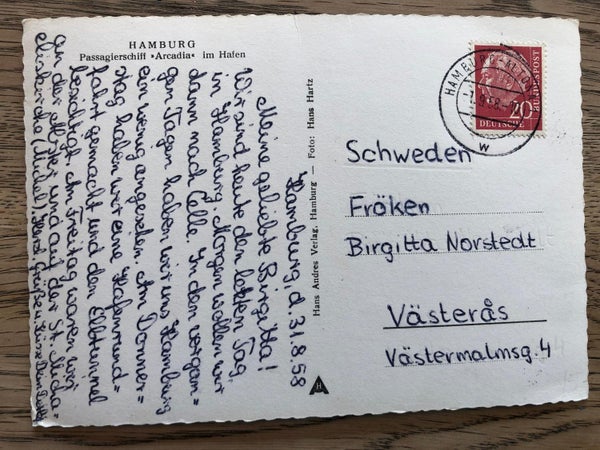 HAMBURG
Passagierschiff »Arcadia« im Hafen
Hamburg, d. 31.8.58
Meine geliebte Birgitta!
Wir sind heute den letzten Tag
in Hamburg. Morgen wollen wir
dann nach Celle. In den vergan=
genen Tagen haben wir uns Hamburg
ein wenig angesehen. Am Donner=
stag haben wir eine Hafenrund=
fahrt gemacht und den Elbtunnel
besichtigt. Am Freitag waren wir
an der Alster und auf der St. Micha=
eliskirche (Michel). Herzl. Grüße u. Küsse Dein
Hans Andres Verlag, Hamburg — Foto: Hans Hartz
H
HAMBURG
58
W
20
DEUTSCHE
BUNDESPOST
Schweden
Fröken
Birgitta Norstedt
Västerås
Västermalmsg. 4